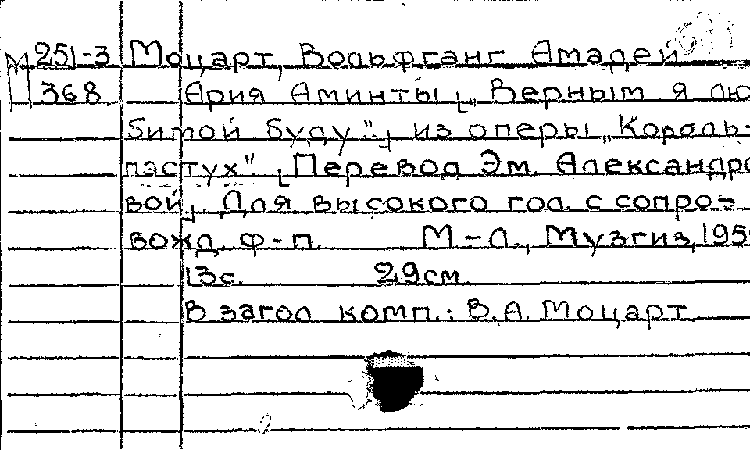 М 251-3 Моцарт, Вольфганг Амадей
368 Ария Аминты [„Верным я лю
бимой буду"] из оперы „Король-
пастух". [Перевод Эм. Александро
вой]. Для высокого гол. с сопро-
вожд. ф-п. М-Л., Музгиз, 195
13с. 29см.
В загол комп.: В.А. Моцарт